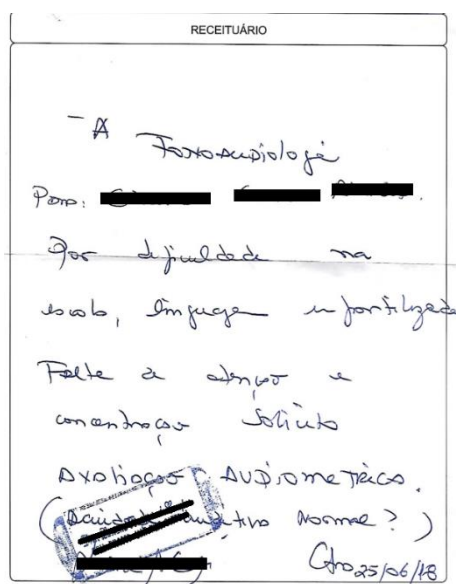 RECEITUÁRIO
- A
Fonoaudiologia
Para:
Por dificuldade na
escola, linguagem infantilizada
Falta de atenção e
concentração Solicito
Avaliação AUDIOMETRICA.
( auditiva Normal? )
25/06/18